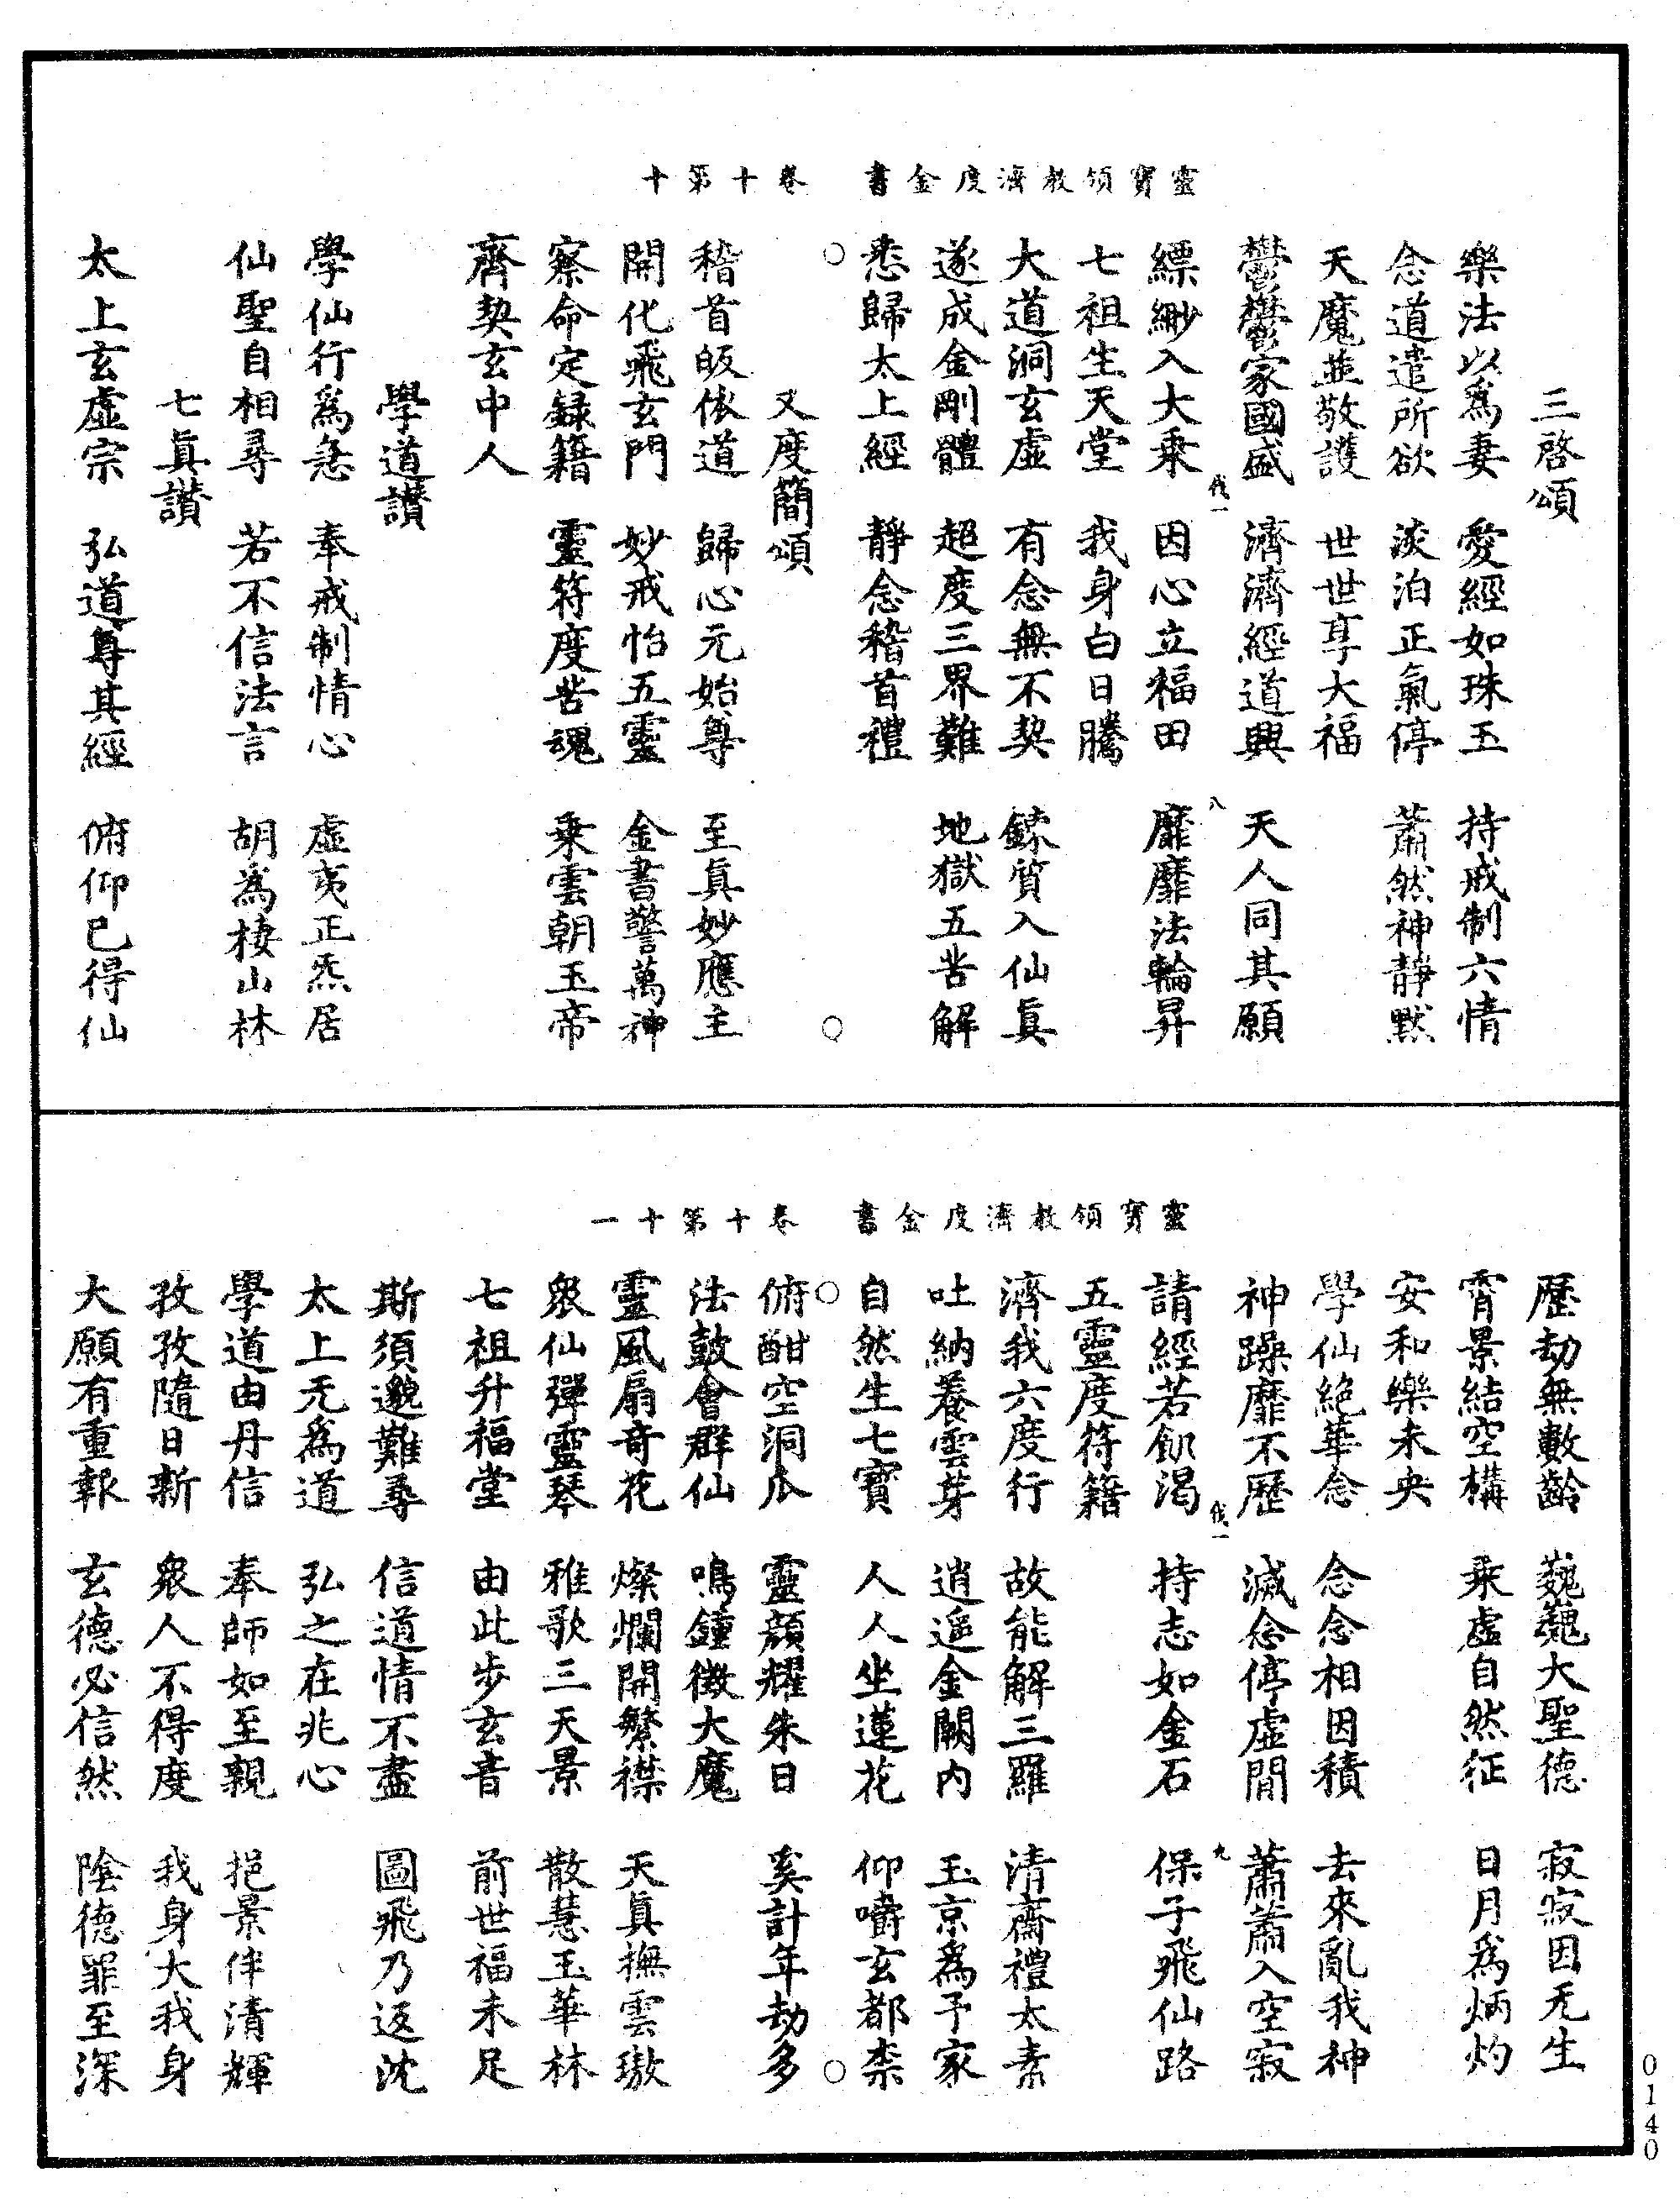 靈寶領教濟度金書　卷十第十
三啓頌
樂法以爲妻　愛經如珠玉　持戒制六情
念道遣所欲　淡泊正氣停　蕭然神靜默
天魔並敬護　世世享大福
鬱鬱家國盛　濟濟經道興　天人同其願
伐一　八
縹緲入大乗　因心立福田　靡靡法輪昇
七祖生天堂　我身白日騰
大道洞玄虛　有念無不契　鍊質入仙眞
遂成金剛體　超度三界難　地獄五苦解
悉歸太上經　靜念稽首禮
○　○
又度簡頌
稽首皈依道　歸心元始尊　至眞妙應主
開化飛玄門　妙戒怡五靈　金書警萬神
察命定録籍　靈符度苦魂　乗雲朝玉帝
齊契玄中人
學道讃
學仙行爲急　奉戒制情心　虛夷正炁居
仙聖自相尋　若不信法言　胡爲棲山林
七眞讃
太上玄虛宗　弘道尊其經　俯仰已得仙
靈寶領教濟度金書　卷十第十一
歷劫無數齡　巍巍大聖德　寂寂因无生
霄景結空構　乗虛自然征　日月爲炳灼
安和樂未央
學仙絕華念　念念相因積　去來亂我神
神躁靡不歷　滅念停虛閒　蕭蕭入空寂
伐一　九
請經若飢渴　持志如金石　保子飛仙路
五靈度符籍
濟我六度行　故能解三羅　清齋禮太素
吐納養雲芽　逍遥金闕内　玉京爲予家
自然生七寳　人人坐蓮花　仰嚼玄都柰
○　○
俯酣空洞瓜　靈顔耀朱日　奚計年劫多
法鼓會群仙　鳴鐘徵大魔
靈風扇奇花　燦爛開繁襟　天眞撫雲璈
衆仙彈靈琴　雅歌三天景　散慧玉華林
七祖升福堂　由此步玄音　前世福未足
斯須邈難尋　信道情不盡　圖飛乃返沈
太上无爲道　弘之在兆心
學道由丹信　奉師如至親　挹景伴清輝
孜孜隨日新　衆人不得度　我身大我身
大願有重報　玄德必信然　陰德罪至深
0140